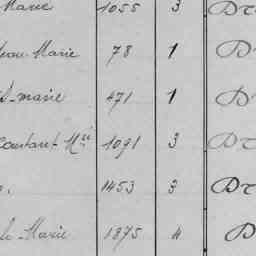 Marie 1055 3 Dr
Marie 78 1 D
marie 471 1 D
Constant Mie 1091 3 Dr
1453 3 Dr
Marie 1375 4 D